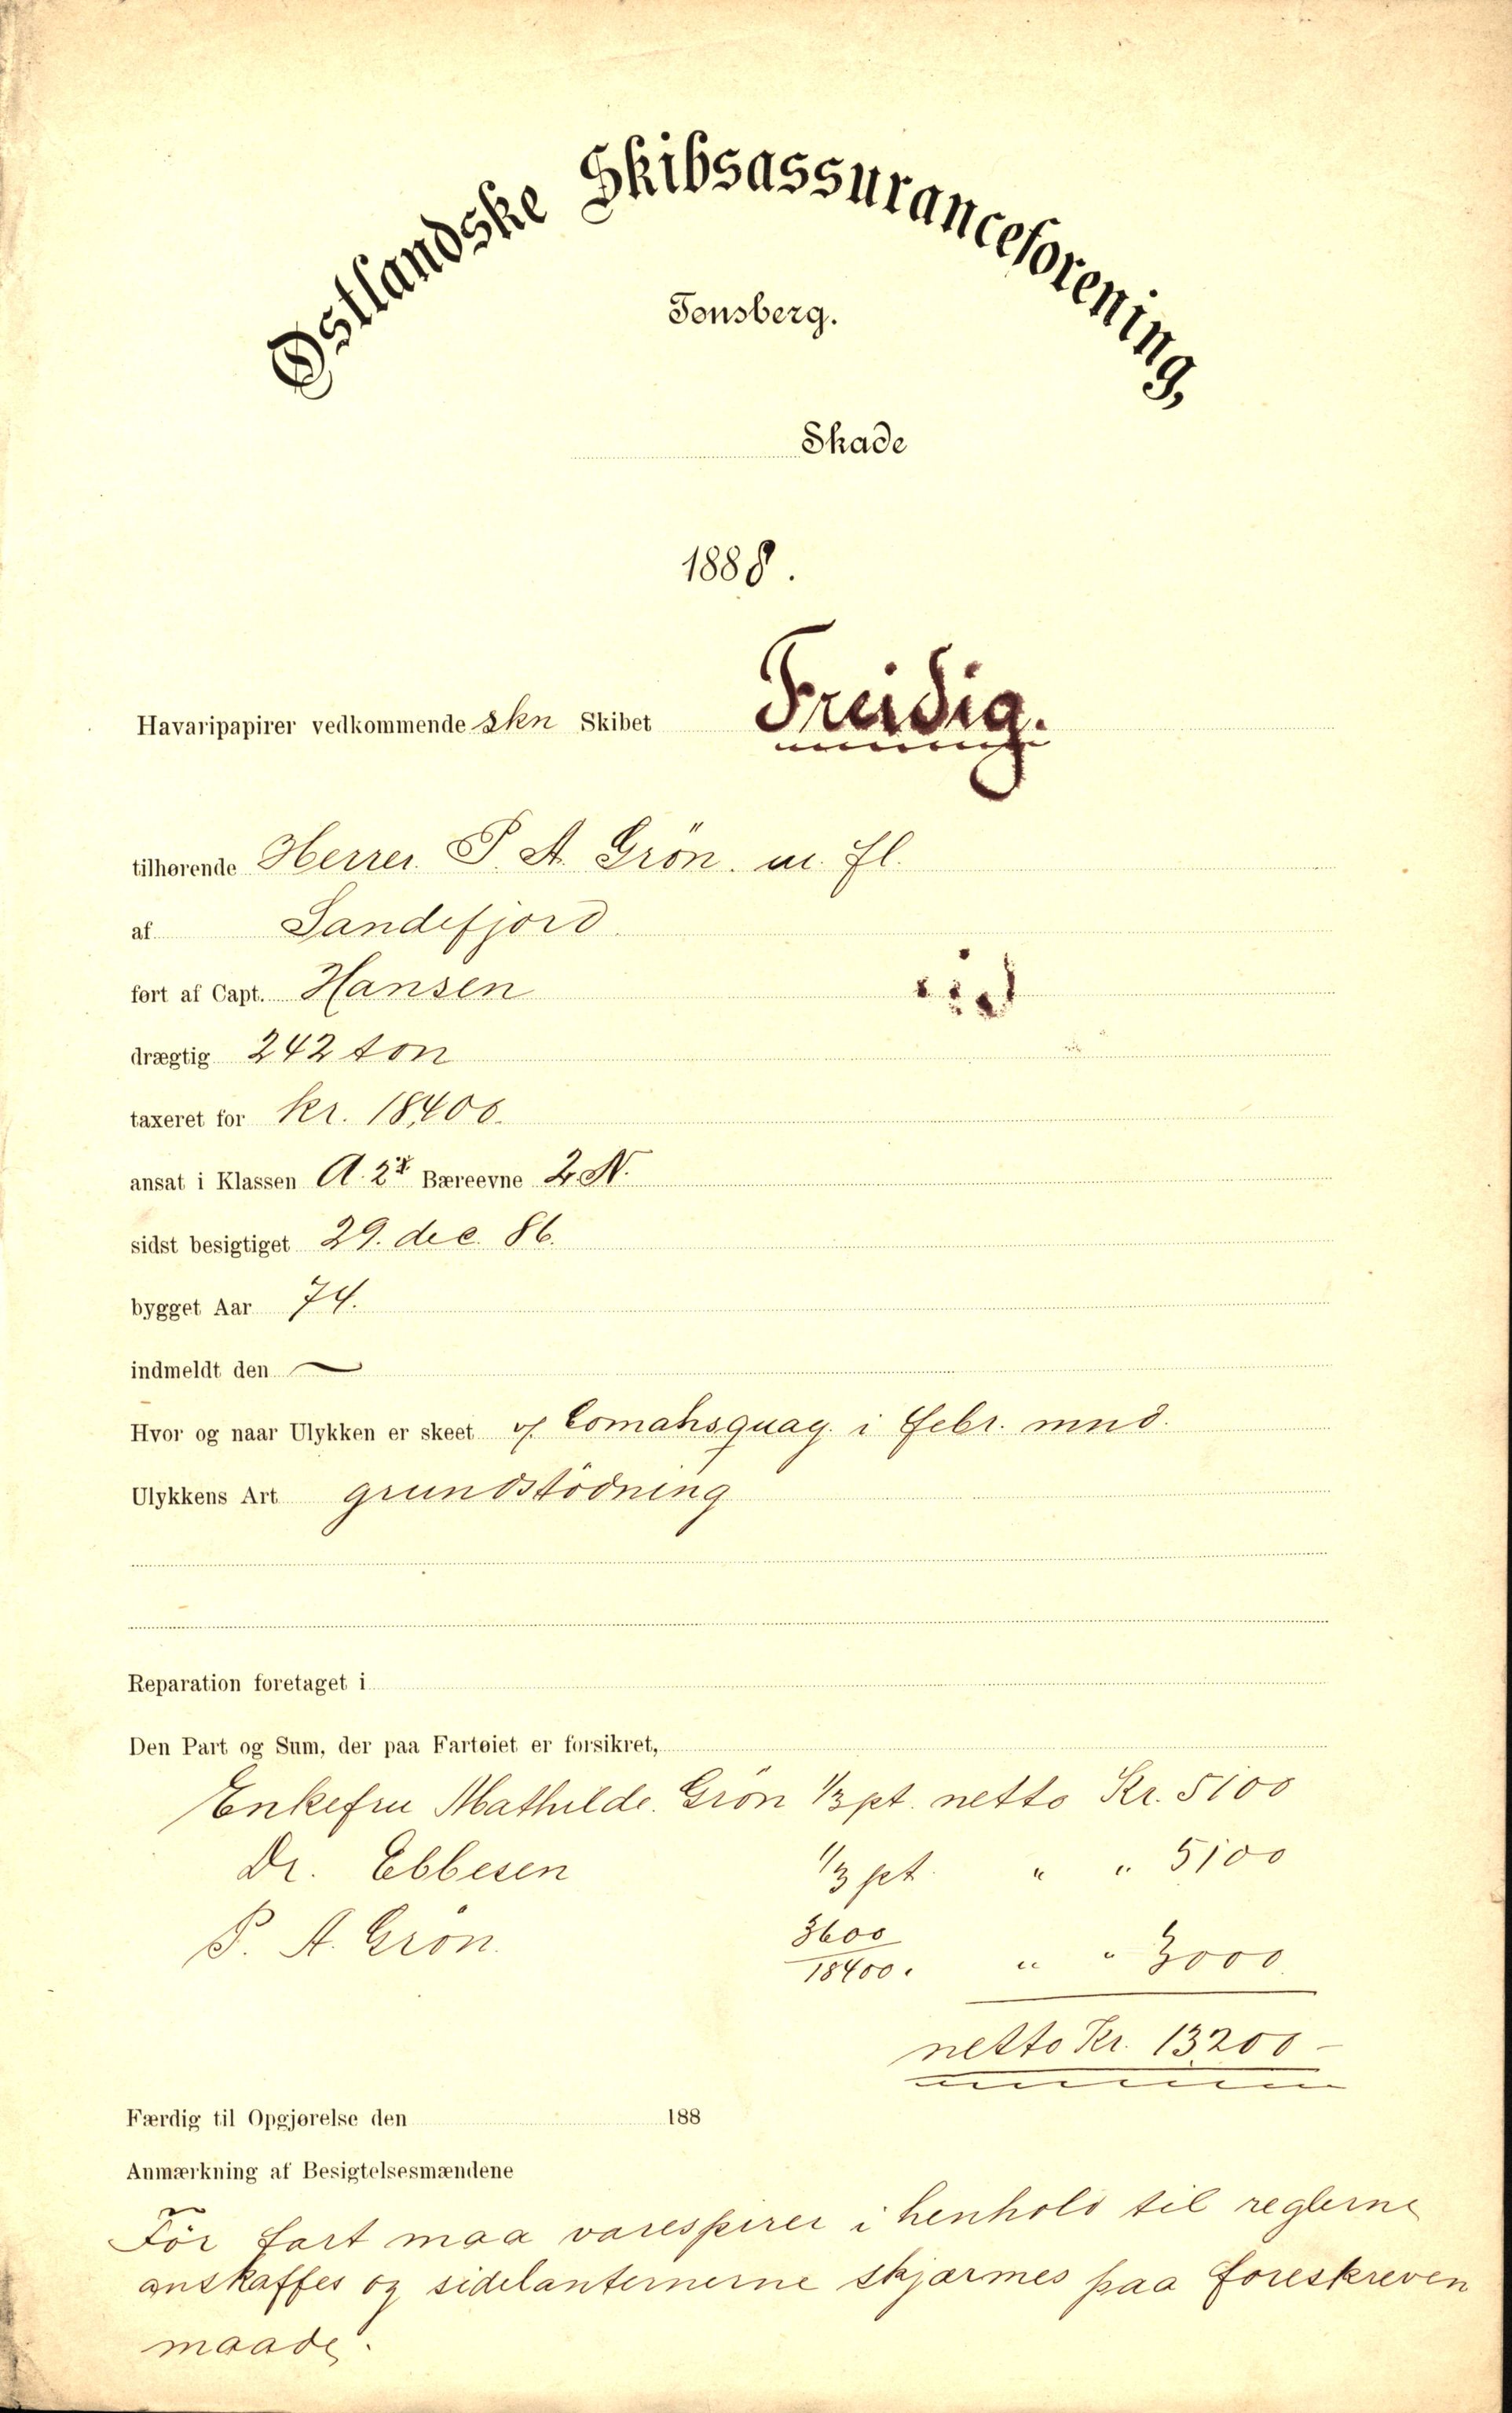 Østlandske Skibsassuranceforening,
Tønsberg.
Skade
1888.
Havaripapirer vedkommende skn Skibet Freidig.
tilhørende Herrer P. A. Grön. m. fl.
af Sandefjord.
ført af Capt. Hansen
drægtig 242 ton
taxeret for kr. 18,400.
ansat i Klassen A. 2 Bæreevne 2. N.
sidst besigtiget 29. dec. 86.
bygget Aar 74.
indmeldt den —
Hvor og naar Ulykken er skeet v/ Comahsquay. i febr. mnd.
Ulykkens Art grundstödning
Reparation foretaget i
Den Part og Sum, der paa Fartøiet er forsikret,
Enkefru Mathilde. Grön 1/3 pt. netto Kr. 5100
Dr. Ebbesen 1/3 pt. " " 5100
P. A. Grön. 3600/18400. " " 3000
netto Kr. 13200 –
Færdig til Opgjørelse den 188
Anmærkning af Besigtelsesmændene
För fart maa varespirer i henhold til reglerne
anskaffes og sidelanternerne skjærmes paa foreskreven
maade.